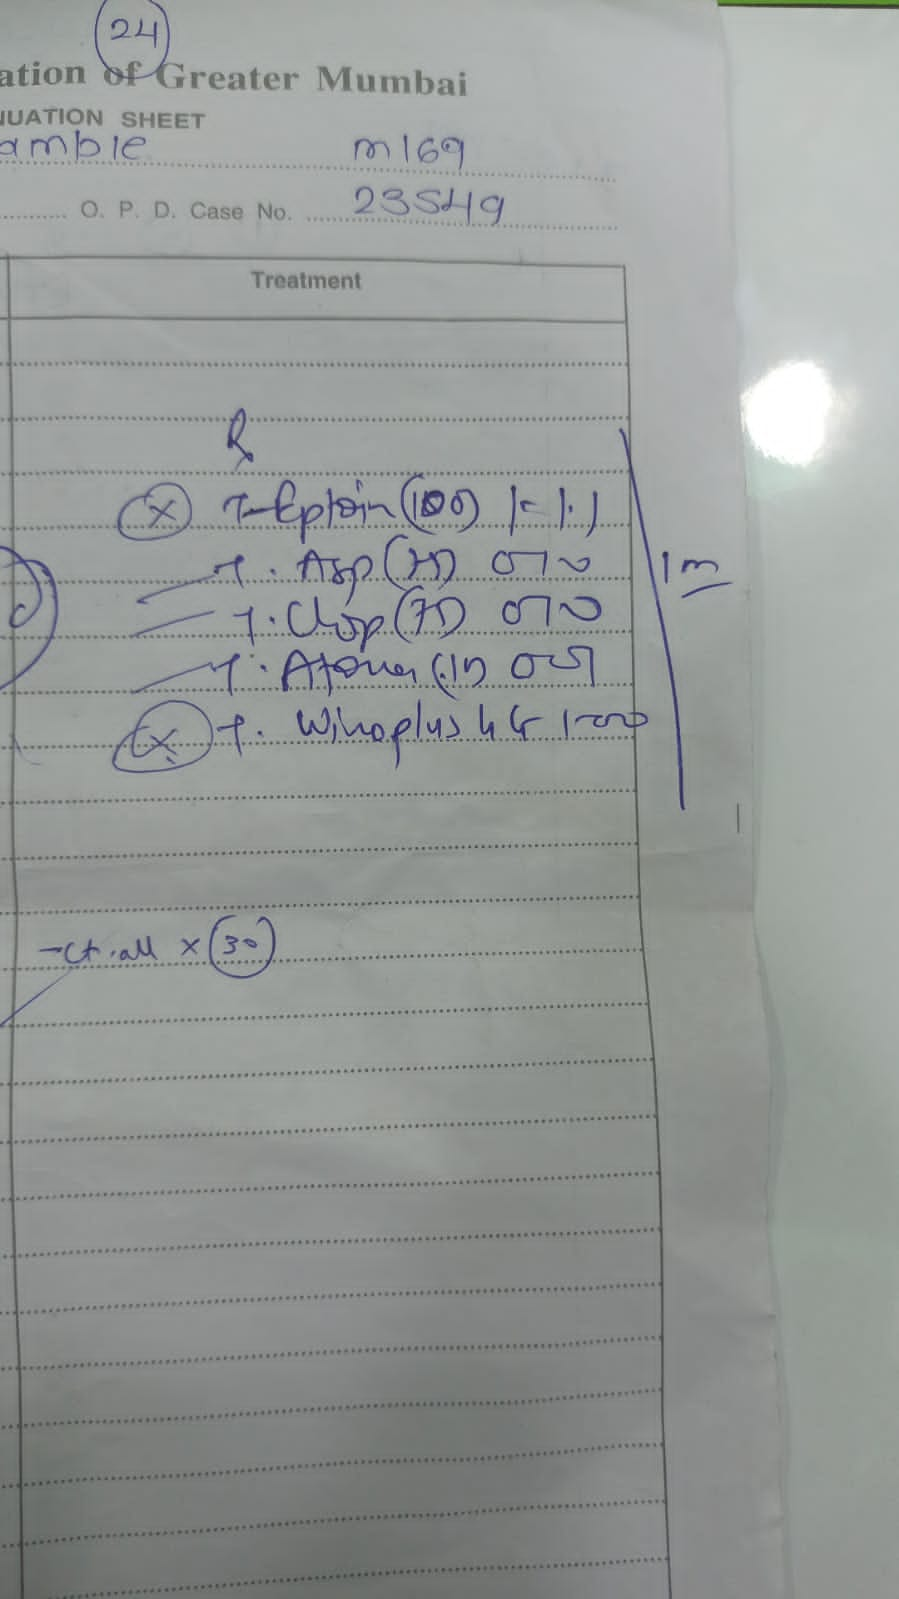 24
ation of Greater Mumbai
NUATION SHEET
amble m169
O. P. D. Case No. 23549
Treatment
℞
x T-Eptoin (100) 1-1-1
T. Asp (75) 010
T. Clop (75) 010
T.
x T. 100
1m
-Ct. all x 30